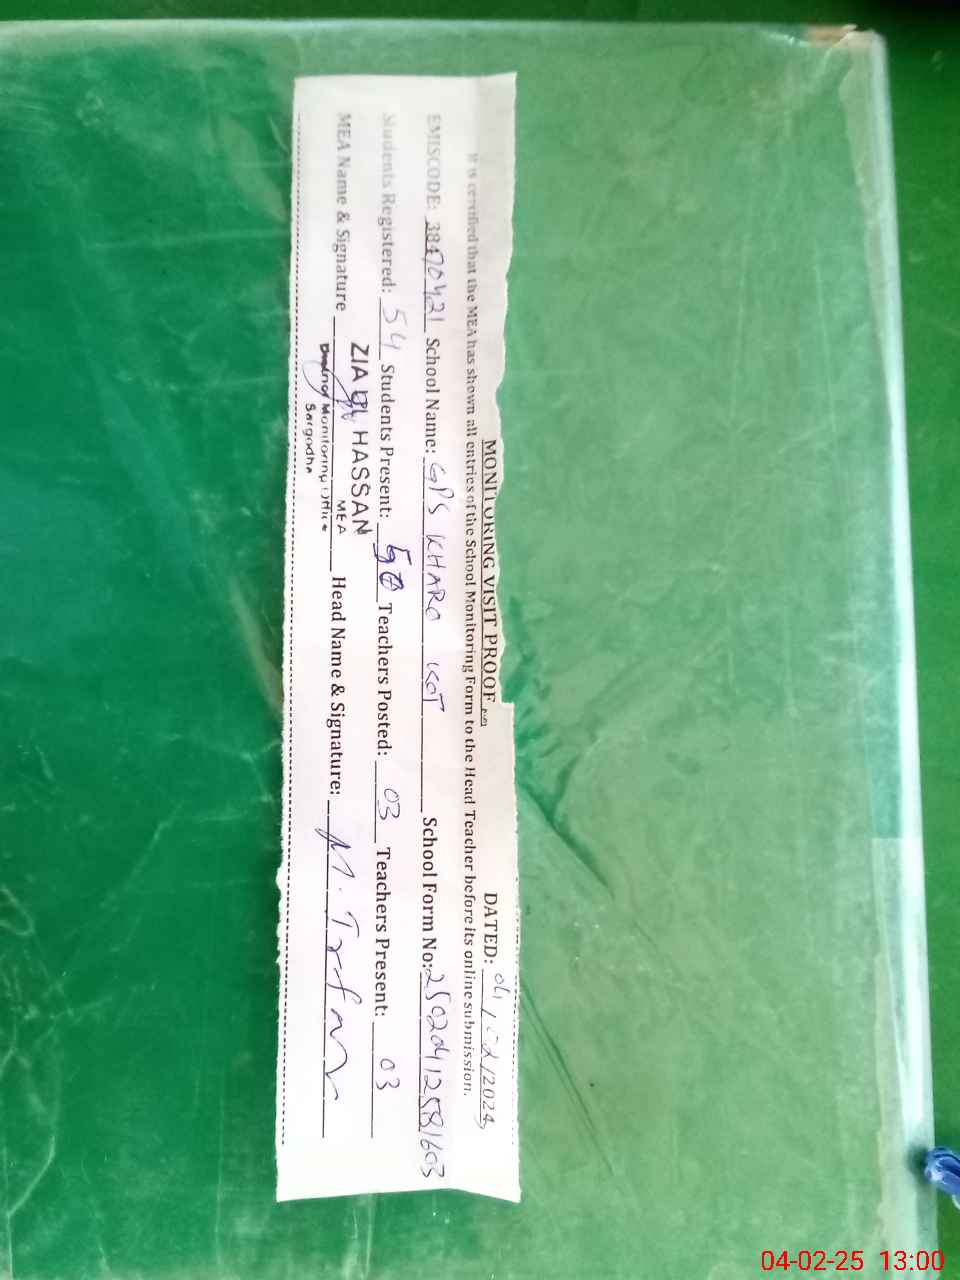 MONITORING VISIT PROOF
DATED: 04/02/2024
It is certified that the MEA has shown all entries of the School Monitoring Form to the Head Teacher before its online submission.
EMISCODE: 38470421 School Name: GPS KHARO KOT School Form No: 25020412581603
Students Registered: 54 Students Present: 50 Teachers Posted: 03 Teachers Present: 03
MEA Name & Signature Head Name & Signature: M. Irfan
ZIA UL HASSAN
MEA
Monitoring Office
Sargodha
04-02-25 13:00